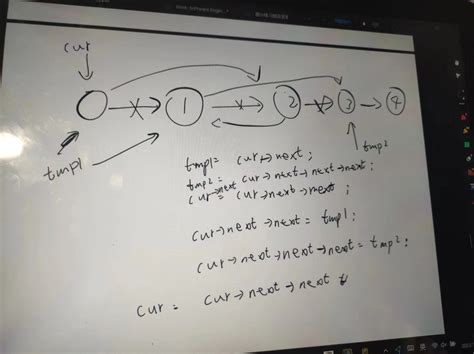 cur
1
2
3
4
tmp1
tmp2
tmp1= cur->next;
tmp2= cur->next->next->next;
cur->next= cur->next->next;
cur->next->next= tmp1;
cur->next->next->next= tmp2;
cur= cur->next->next